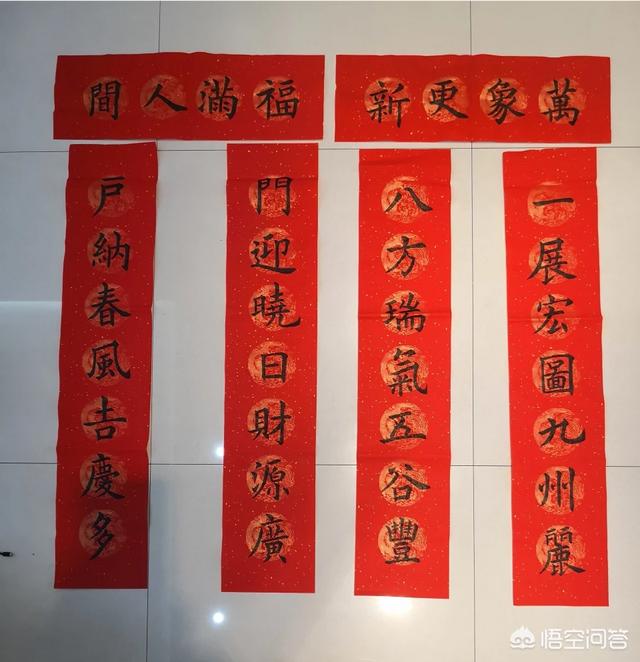 萬象更新
福滿人間
一展宏圖九州麗
八方瑞氣五谷豐
門迎曉日財源廣
戶納春風吉慶多
悟空问答